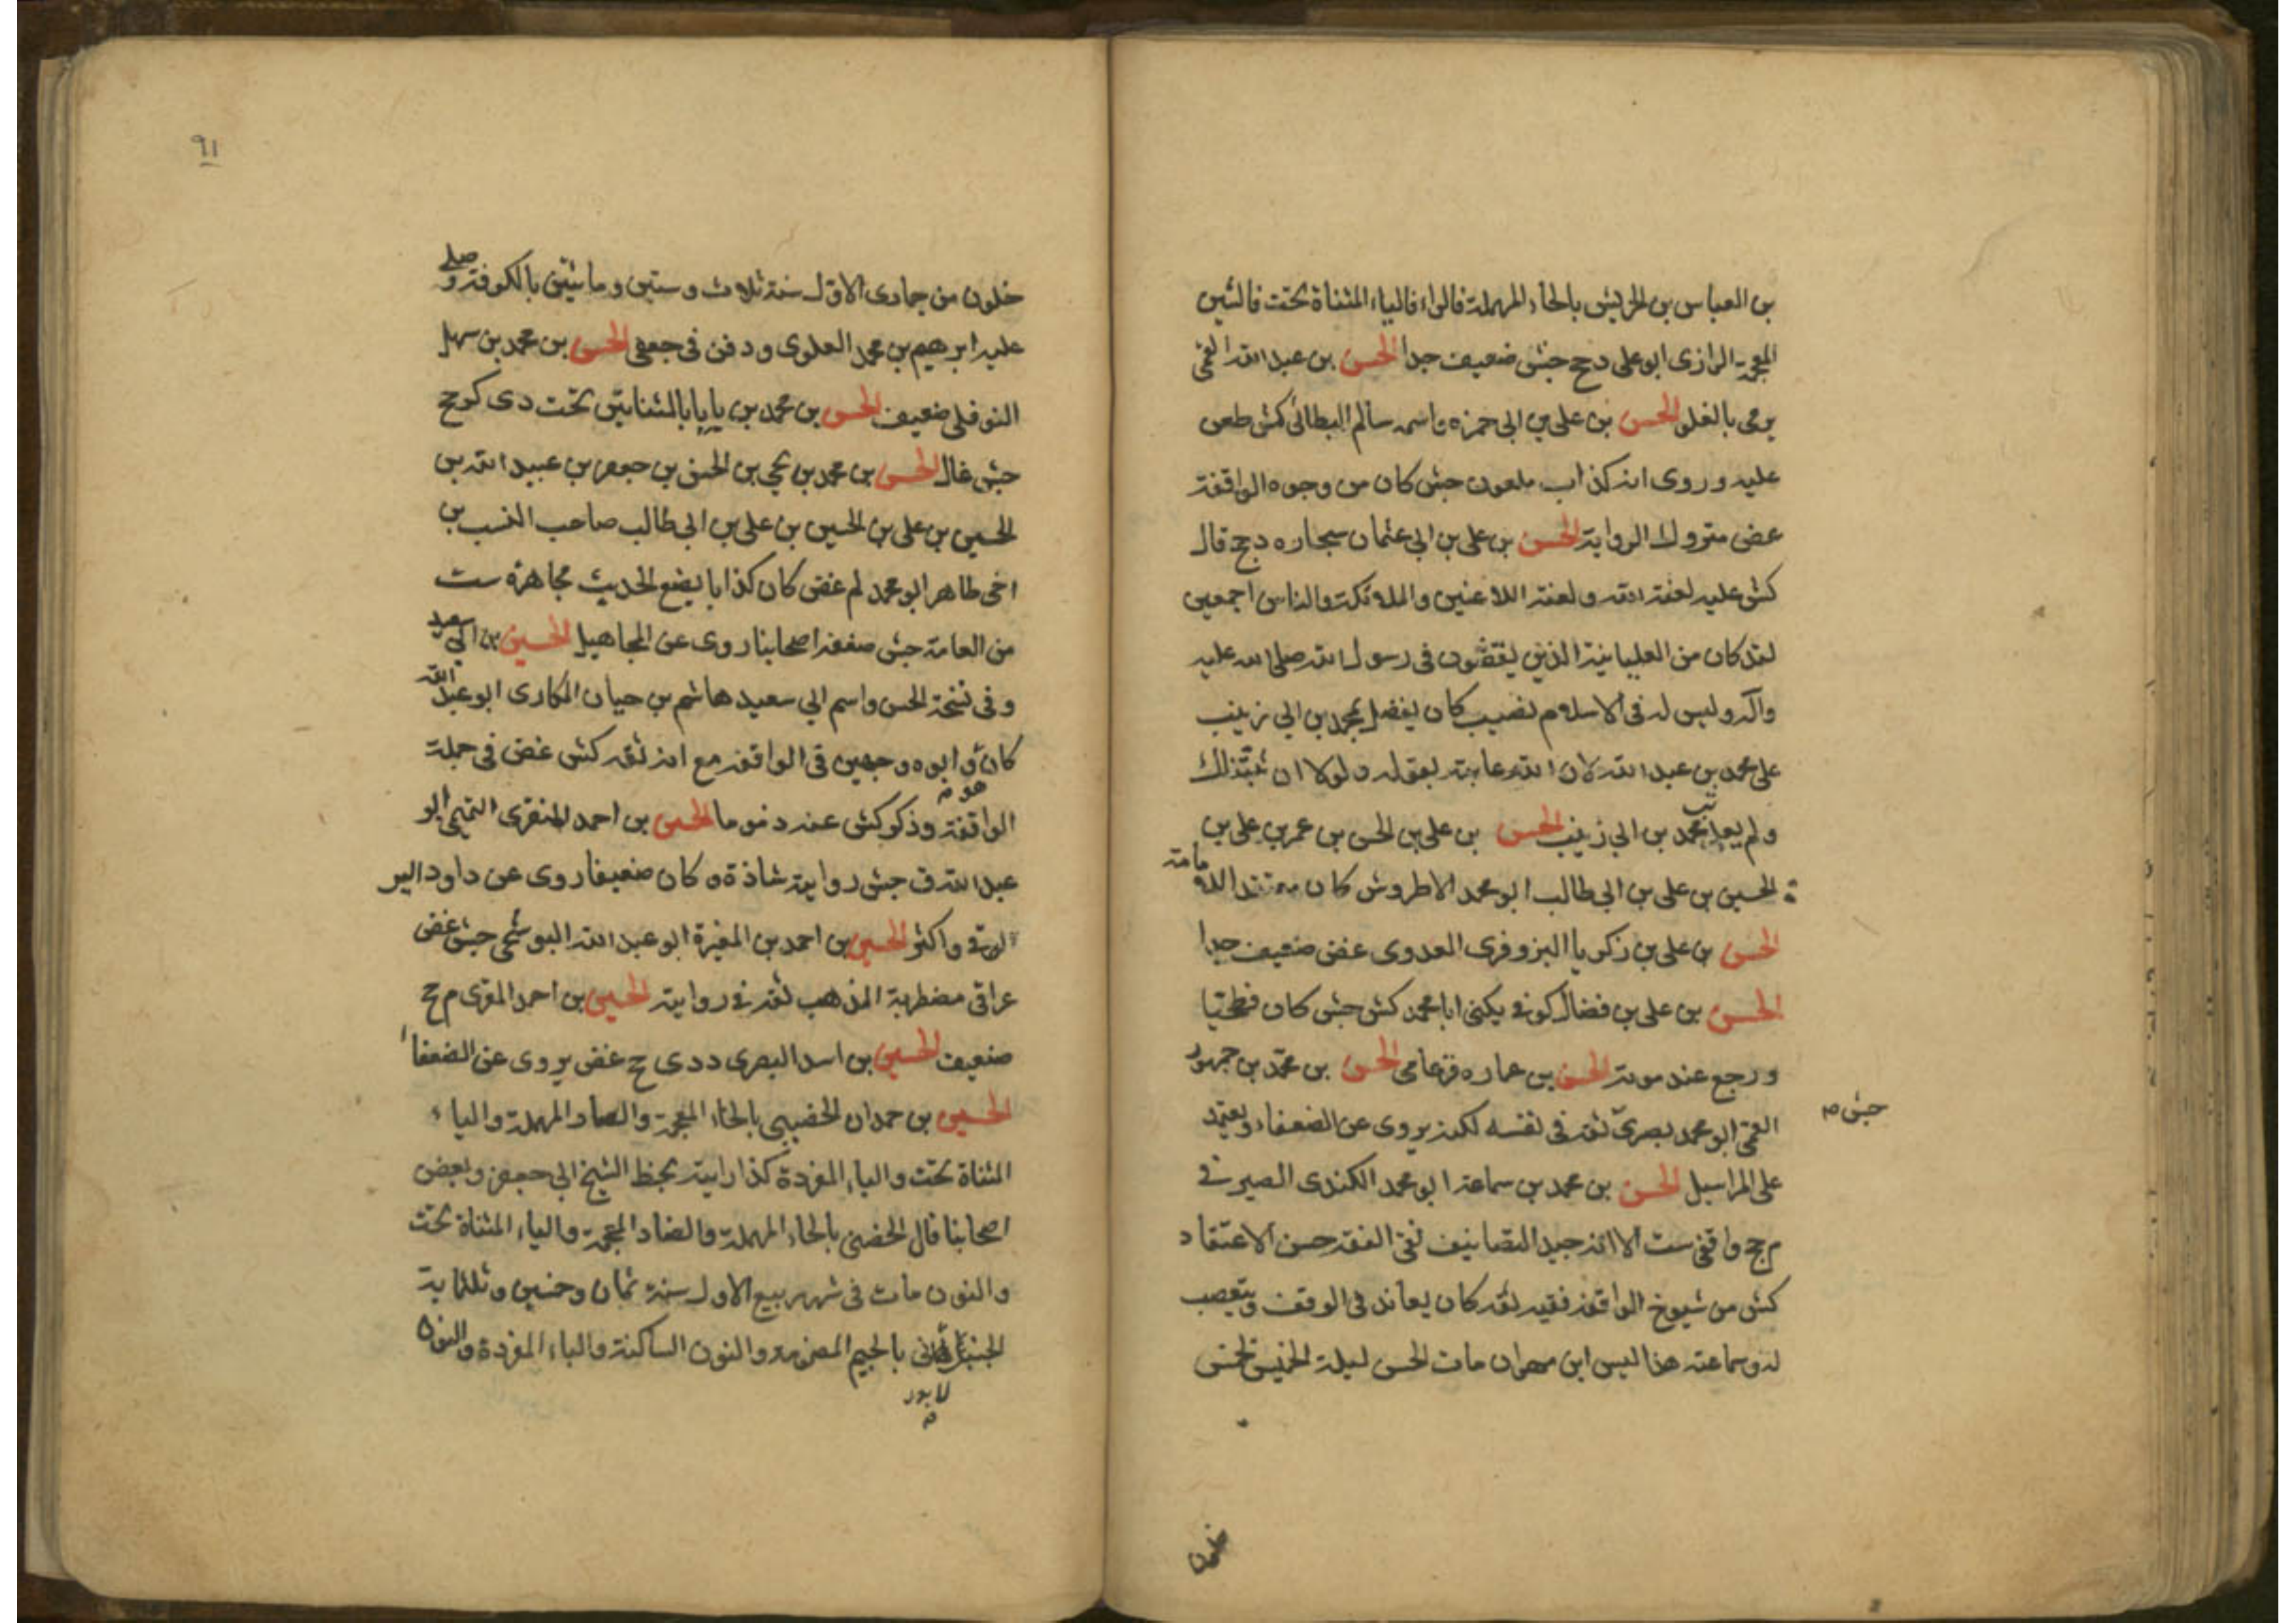 بن العباس بن الحريش بالحاء المهملة فالراء فالياء المثناة تحت فالشين
المعجمة الرازى ابو على دج جش ضعيف جدا الحسن بن عبد الله القمى
يرمى بالغلو الحسن بن على بن ابى حمزه واسمه سالم البطائى كش طعن
عليه وروى انه كذاب ملعون جش كان من وجوه الواقفة
غض متروك الرواية الحسن بن على بن ابى عثمان سجاره دج قال
كش عليه لعنة الله ولعنة اللاعنين والملائكة والناس اجمعين
لقد كان من العليائية الذين يقعون فى رسول الله صلى الله عليه
وآله وليس له فى الاسلام نصيب كان يفضل محمد بن ابى زينب
على محمد بن عبد الله لان الله عاتبه بقوله ولولا ان ثبتناك
ولم يعاتب محمد بن ابى زينب الحسن بن على بن الحسن بن عمر بن على بن
الحسين بن على بن ابى طالب ابو محمد الاطروش كان يعتقد الامامة
الحسن بن على بن زكريا البزوفرى العدوى غض ضعيف جدا
الحسن بن على بن فضال كوفى يكنى ابا محمد كش جش كان فطحيا
ورجع عند موته الحسن بن عماره ق عامى الحسن بن محمد بن جمهور
جش صح
القمى ابو محمد بصرى ثقة فى نفسه لكنه يروى عن الضعفاء ويعتمد
على المراسيل الحسن بن محمد بن سماعة ابو محمد الكندى الصيرفى
م جج واقفى ست الا انه جيد التصانيف نقى الفقه حسن الاعتقاد
كش من شيوخ الواقفة فقيه ثقة كان يعاند فى الوقف ويتعصب
له وسماعة هذا ليس ابن مهران مات الحسن ليلة الخميس لخمس
خلون
٩١
خلون من جمادى الاول سنة ثلاث وستين ومائتين بالكوفة وصلى
عليه ابرهيم بن محمد العلوى ودفن فى جعفى الحسن بن محمد بن سهل
النوفلى ضعيف الحسن بن محمد بن يايا بالمثناتين تحت دى كر جح
جش غال الحسن بن محمد بن يحيى بن الحسن بن جعفر بن عبيد الله بن
الحسين بن على بن الحسين بن على بن ابى طالب صاحب النسب بن
اخى طاهر ابو محمد لم غض كان كذابا يضع الحديث مجاهرة ست
من العامة جش ضعفه اصحابنا روى عن المجاهيل الحسين بن ابى سعيد
وفى نسخة الحسن واسم ابى سعيد هاشم بن حيان المكارى ابو عبد الله
كان هو وابوه وجهين فى الواقفة مع انه ثقة كش غض فى جملة
الواقفة وذكر كش عنه ذموما الحسين بن احمد المنقرى التميمى ابو
عبد الله ق جش رواية شاذة ه كان ضعيفا روى عن داود الير
الرقى واكثر الحسين بن احمد بن المغيرة ابو عبد الله البوشنجى جش غض
عراقى مضطرب المذهب ثقة فى روايته الحسين بن احمد المقرى م جح
ضعيف الحسين بن اسد البصرى د دى ح غض يروى عن الضعفاء
الحسين بن حمدان الخصيبى بالخاء المعجمة والصاد المهملة والياء
المثناة تحت والباء المفردة كذا رايته بخط الشيخ ابى جعفر وبعض
اصحابنا قال الحضينى بالحاء المهملة والضاد المعجمة والياء المثناة تحت
والنون مات فى شهر ربيع الاول سنة ثمان وخمسين وثلثماية
الجنبلانى بالجيم المضمومة والنون الساكنة والباء المفردة والنون